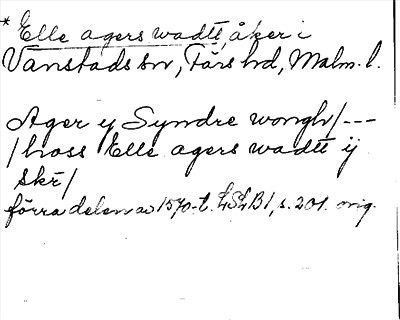 * Elle agers wadtt, åker i
Vanstads sn, Färs hd, Malm. l.
Ager y Syndre wongh/---
/hoss Elle agers wadtt ÿ
skē/
förra delen av 1570-t. LSLB1, s. 201. orig.